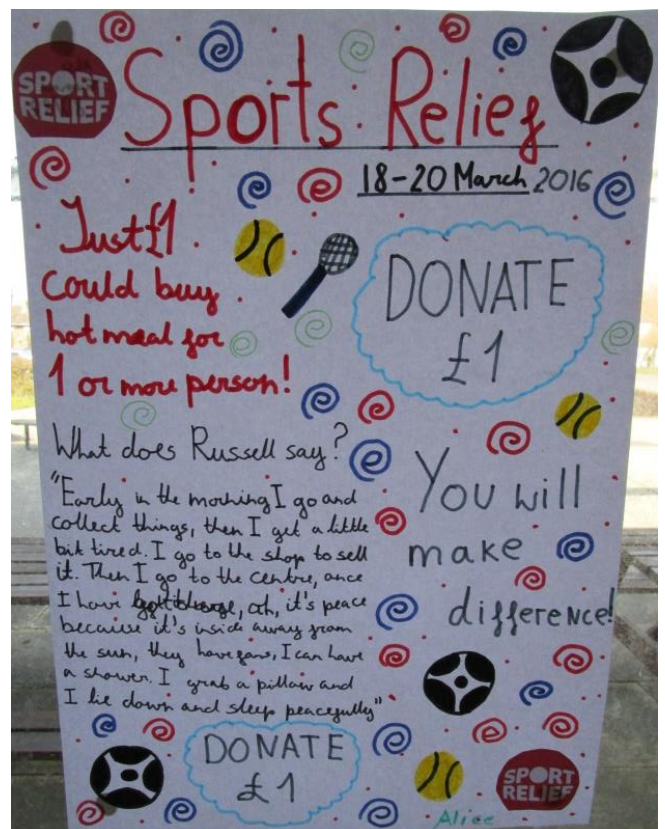 SPORT
RELIEF
Sports Relief
18-20 March 2016
Just £1
could buy
hot meal for
1 or more person!
DONATE
£1
What does Russell say?
"Early in the morning I go and
collect things, then I get a little
bit tired. I go to the shop to sell
it. Then I go to the centre, once
I have, ah, it's peace
because it's inside away from
the sun, they have fans, I can have
a shower. I grab a pillow and
I lie down and sleep peacefully"
You will
make
difference!
DONATE
£1
SPORT
RELIEF
Alice